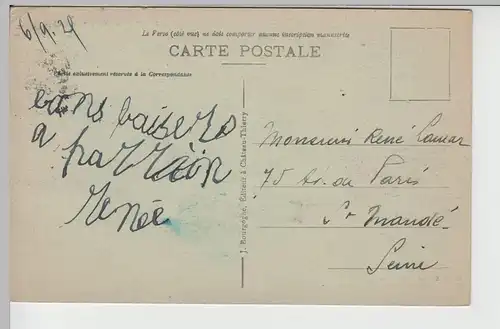 6/9.29
Le Verso (côté vue) ne doit comporter aucune inscription manuscrite
CARTE POSTALE
Côté exclusivement réservée à la Correspondance
bons baisers
a
Renée
J. Bourgogne, Éditeur à Château-Thierry
Monsieur René
75 Av. de Paris
St Mandé.
Seine